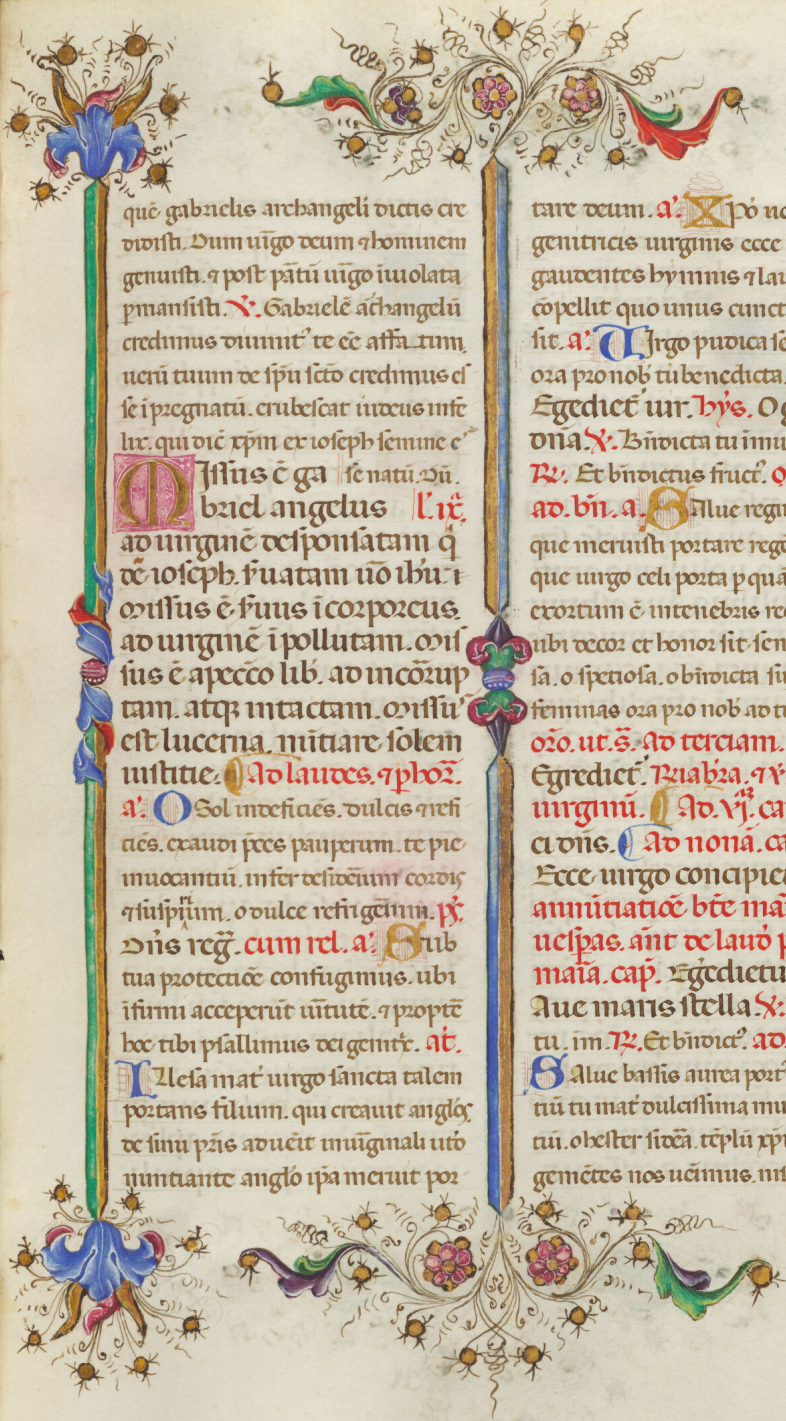 què gabrielis archangeli dictis cre
didisti. Dum uı̄go deum ⁊ hominem
genuisti. ⁊ post pātū uı̄go īuiolata
ꝑmansisti. ℣. Gabrielē ac̄hangelū
credimus diuinit᾽ te eē affatum.
uterū tuum de spū scō credimus
se īpregnatū. erubescat iudeus infe
lix. qui dic̄ xp̄m ex ioseph semine e᾽
Missus ē ga se natū. Dū.
briel angelus l'ıx̄.
ad uirginē desponsatam q̄
dē ioseph. ẜuatam uō ihū: ı
Missus ē ẜuus īcorporeus.
ad uirginē īpollutam. Mis
sus ē apeccō lib̄. ad incōrup
tam. atqꝫ intactam. Missu᾽
est lucerna. nūtiare solem
iustitie. Ad laudes. ⁊ ꝑ hor̄.
a᾽. O Sol indeficiēs. dulcis ⁊ refi
ciēs. exaudi p̄ces pauperum. te pie
inuocantiū. infer desideıium cordis
⁊ suspirium. o dulce refrigerium. ps̄.
Dn̄s reḡ. cum rel. a᾽. Sub
tua protectiōe confugimus. ubi
īfirmi acceperūt uı̄tutē. ⁊ proptē
hoc tibi psallimus dei genitˣ. at̄.
Illesa mat᾽ uirgo sancta talem
portans filium. qui creauit anglōꝝ
de sinu pr̄is aduēit inuı̄ginali utō
nuntiante anglō ip̄a meruit por
tare deum. a᾽. Xp̄o
genitricis uirginis ecce
gaudentes hymnis ⁊ lau
cōpellit quo unus cunct
sit. a᾽. Uirgo pudica
ora pro nob᾽ tū benedicta.
Egrediet᾽ uir. hȳs. O g
dn̄a. ℣. Bn̄dicta tu ī mu
℟. Et bn̄dictus fruct᾽.
ad. bn̄. a. Salue regi
que meruisti portare rege
que uirgo celi porta ꝑ quā
exortum ē intenebris
ubi decor et honor sit sen
sa. o spetiosa. o bn̄dicta su
feminas ora pro nob᾽ ad
orō. ut. s̄. Ad terciam.
Egrediet᾽. ℟ria b̄ra. ⁊ ℣
uirginū. Ad. vı̄. ca
ci dn̄s. Ad nonā. ca
Ecce uirgo concipie
annūtiatiōe btē ma
uesp̄as. ānt de laud᾽
maı̄a. cap̄. Egredietu
Aue maris stella ℣.
tu. im. ℟. Et bn̄dict᾽. ad
Salue bassis aurea port
tiū tu mat᾽ dulcissima mu
tui. o hester sidēa. tēplū xp̄i
gemētes nos uēimus.